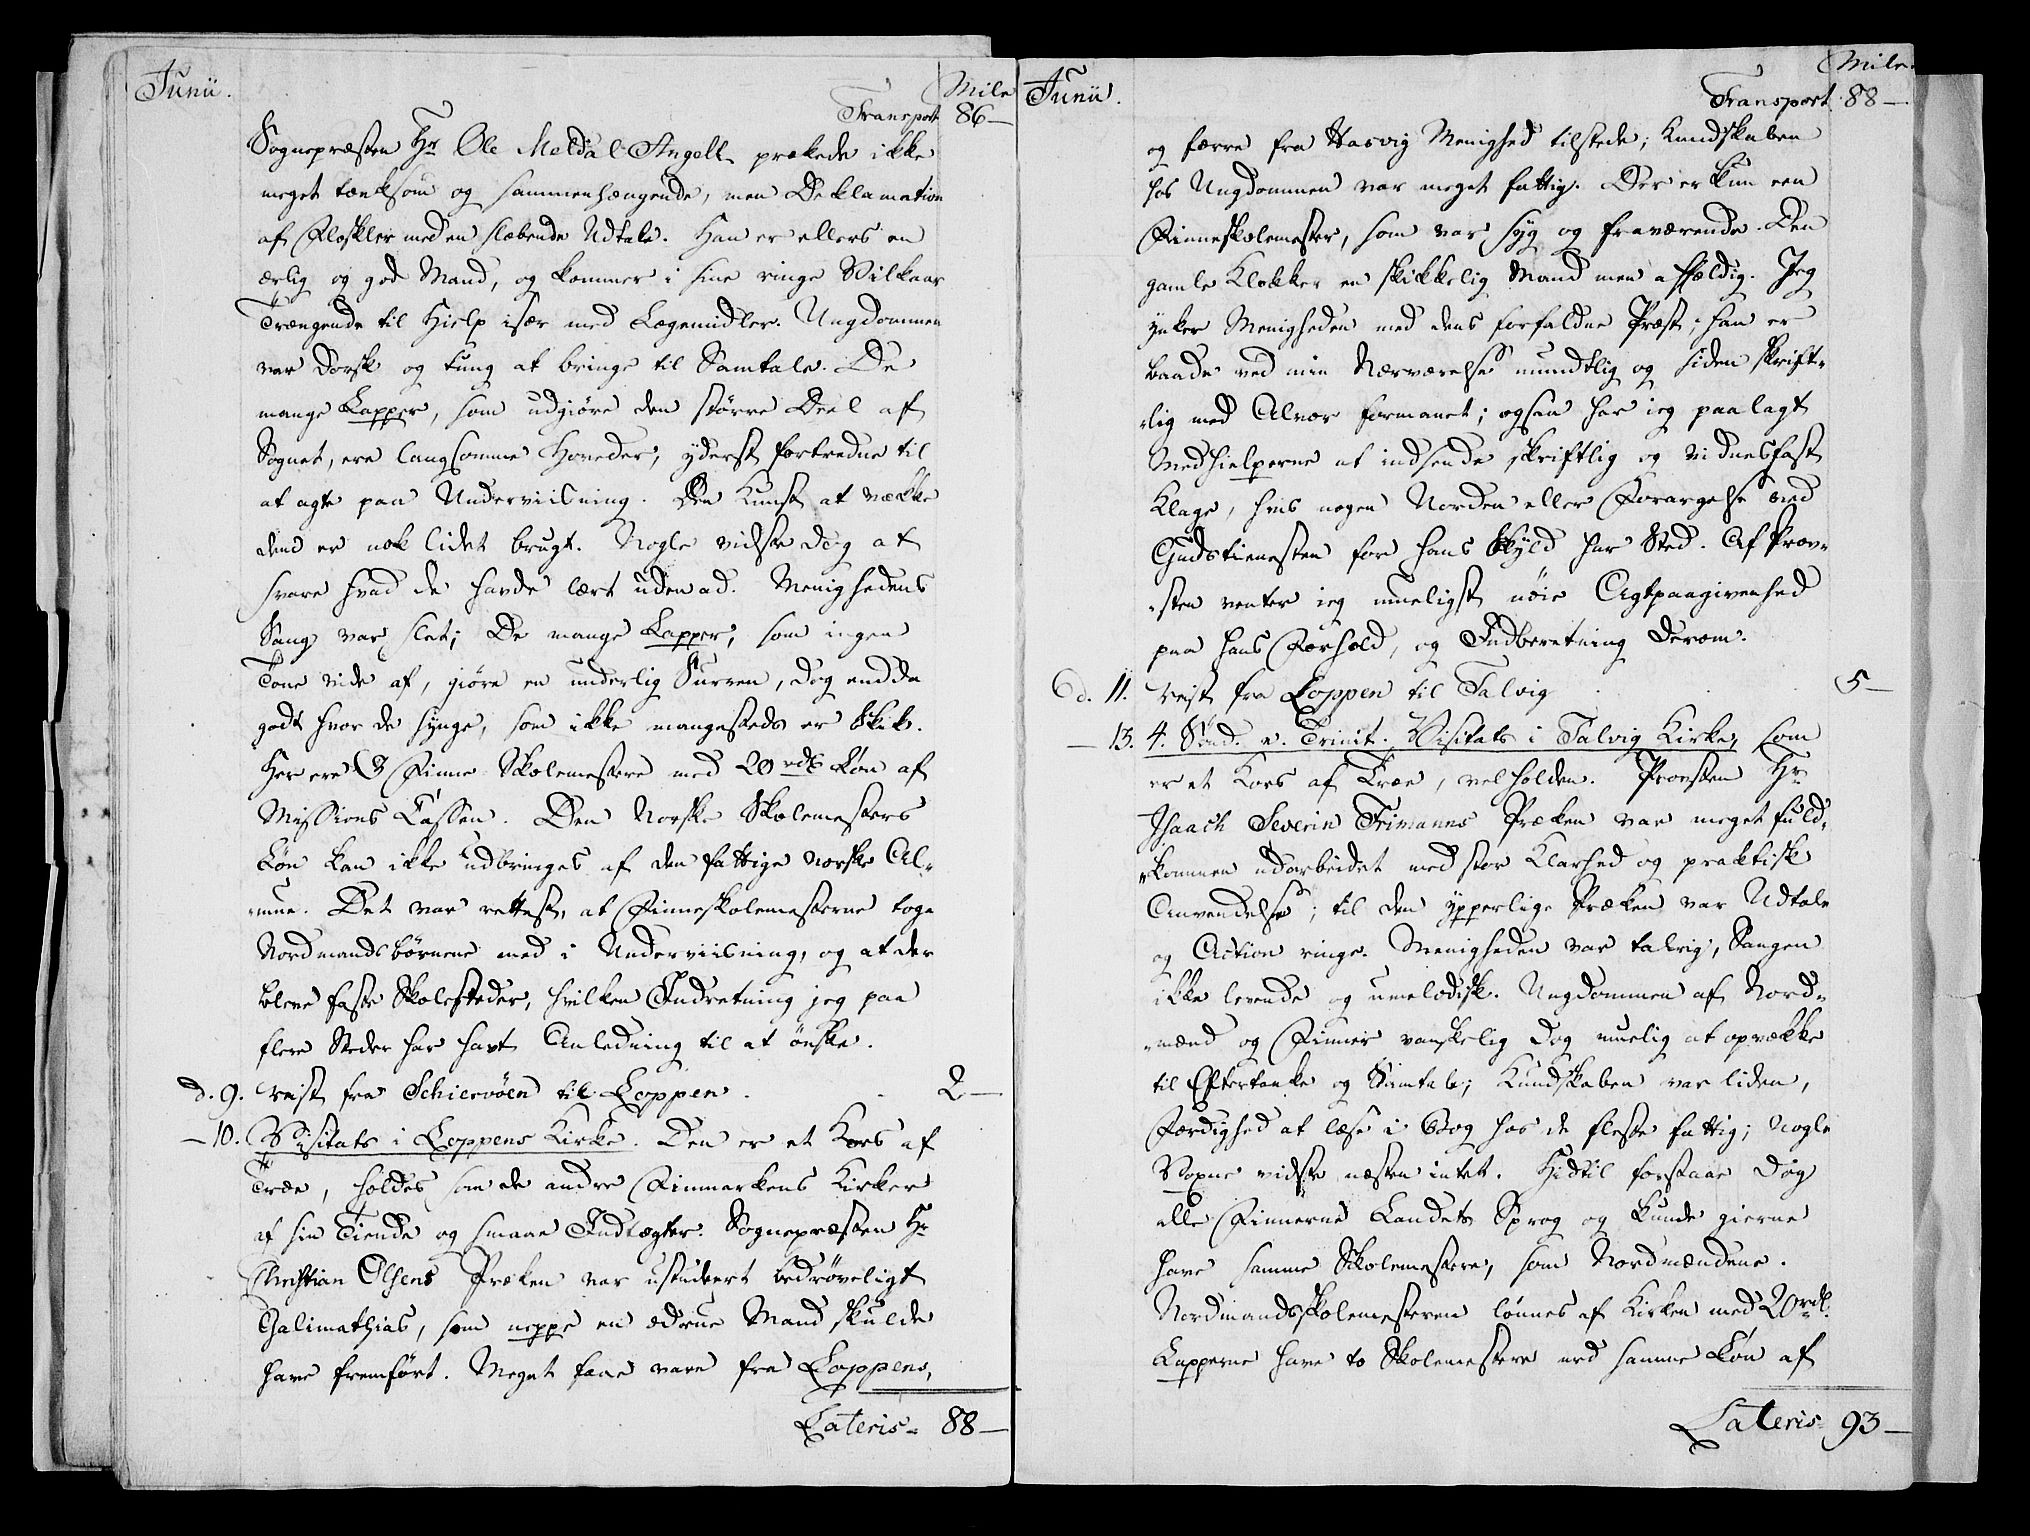 Junii.
Mile
Transport 86 —
Sognepræsten Hr Ole Meldal Angell prækede ikke
meget tænksom og sammenhængende, men Deklamation
af Floskler med en slæbende Udtale. Han er ellers en
ærlig og god Mand, og kommer i sine ringe Vilkaar
Trængende til Hielp især med Lægemidler. Ungdommen
var dorsk og tung at bringe til Samtale. De
mange Lapper, som udgiøre den større Deel af
Sognet, ere langsomme Hoveder, yderst fortredne til
at agte paa Underviisning. Den Kunst at vække
dem er nok lidet brugt. Nogle vidste dog at
svare hvad de havde lært udenad. Menighedens
Sang var slet; De mange Lapper, som ingen
Tone vide af, giøre en underlig Surren, dog endda
godt hvor de synge, som ikke mangesteds er Skik.
Her ere 3 Finne Skolemestere med 20 rdl Løn af
Missions Cassen. Den Norske Skolemesters
Løn kan ikke udbringes af den fattige norske Al-
-mue. Det var rettest, at Finneskolemesterne toge
Nordmandsbørnene med i Underviisning, og at der
bleve faste Skolesteder, hvilken Indretning jeg paa
flere Steder har havt Anledning til at ønske.
d. 9. reist fra Schiervöen til Loppen. 2 —
— 10. Visitats i Loppens Kirke. Den er et Kors af
Træe, holdes som de andre Finmarkens Kirker
af sin Tiende og smaae Indtægter. Sognepræsten Hr
Christian Olsens Præken var ustuderet bedrøveligt
Galimathias, som neppe en ædrue Mand skulde
have fremført. Meget faae vare fra Loppens,
Lateris - 88 —
Junii.
Mile.
Transport 88 —
og færre fra Hasvig Menighed tilstede; Kundskaben
hos Ungdommen var meget fattig. Der er kun een
Finneskolemester, som var syg og fraværende. Den
gamle Klokker en skikkelig Mand men affældig. Jeg
ynker Menigheden med dens forfaldne Præst; han er
baade ved min Nærværelse mundtlig og siden skrift-
-lig med Alvor formanet; ogsaa har ieg paalagt
Medhielperne at indsende skriftlig og vidnesfast
Klage, hvis nogen Uorden eller Forargelse ved
Gudstienesten for hans Skyld har Sted. Af Prov-
-sten venter ieg mueligst nøie Agtpaagivenhed
paa hans Forhold, og Indberetning derom.
d. 11. reist fra Loppen til Talvig 5 —
— 13. 4. Sønd. e. Trinit. Visitats i Talvig Kirke, som
er et Kors af Træe, velholden. Provsten Hr
Isaach Severin Trimanns Præken var meget fuld-
-kommen udarbeidet med stor Klarhed og praktisk
Anvendelse; til den ypperlige Præken var Udtale
og Action ringe. Menigheden var talrig, Sangen
ikke levende og umelodisk. Ungdommen af Nord-
-mænd og Finner vanskelig dog muelig at opvække
til Eftertanke og Samtale; Kundskaben var liden,
Færdighed at læse i Bog hos de fleste fattig; Nogle
Voxne vidste næsten intet. Hidtil forstaae dog
alle Finnerne Landets Sprog og kunde gierne
have samme Skolemestere, som Nordmændene.
Nordmandsskolemesteren lønnes af Kirken med 20 rdl.
Lapperne have to Skolemestere med samme Løn af
Lateris - 93 —